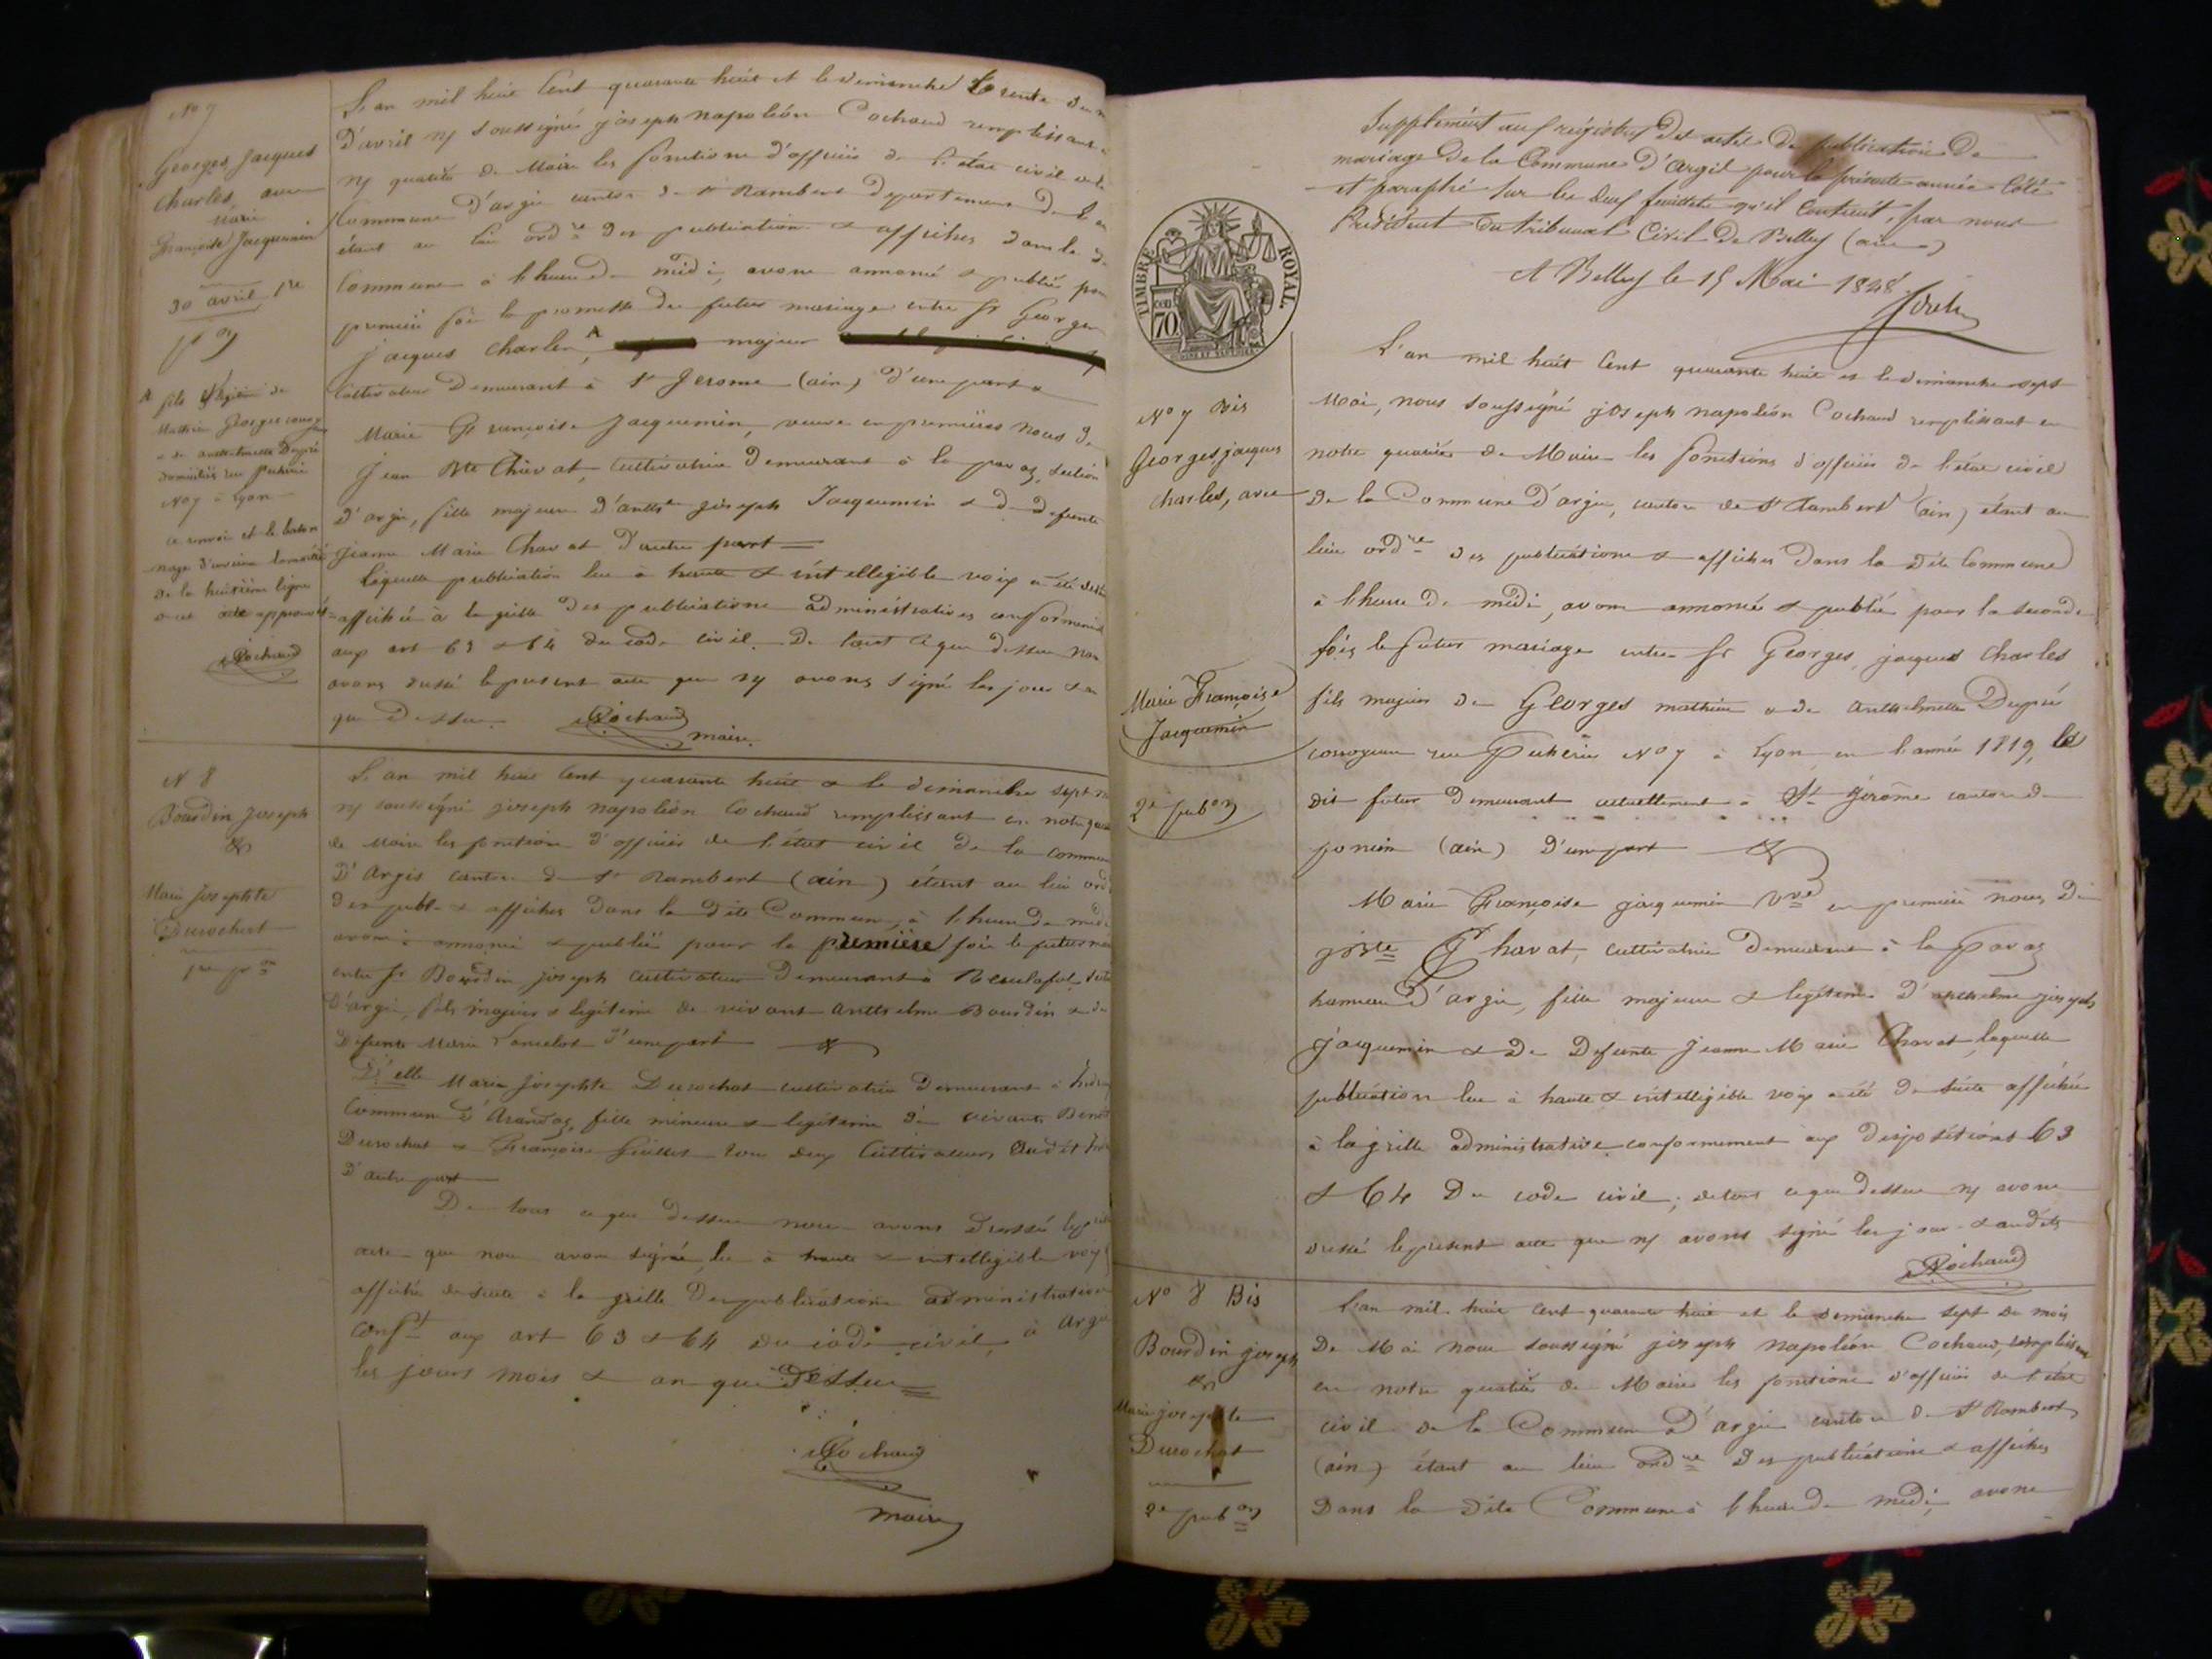 No 7
Georges Jacques
Charles, avec
Marie
Françoise Jacquemin
30 avril 1re
pon
A fils légitime de
Mathieu Georges
& de anthelmette Dupré
domiciliés rue
No 7 à Lyon
ce renvoi et le baton
nage d'environ la moitié
de la huitième ligne
approuvés
Cochaud
L'an mil huit Cent quarante huit et le dimanche trente du
D'avril ns soussigné joseph napoléon Cochaud remplissant
ns qualité de Maire les fonctions d'officier de l'état civil de la
Commune d'argis canton de St Rambert departement de l'
étant au lieu ordre des publications & affiches dans la d
Commune à l'heure de midi, avons annoncé & publié pour
première fois la promesse du futur mariage entre Sr Georges
jacques Charles, A majeur
Cultivateur Demeurant à St Jerome (ain) d'une part &
Marie Françoise Jacquemin, veuve en premières noces de
Jean Bte Chavat, Cultivatrice Demeurant à la pavaz, section
d'argis, fille majeure d'anthe joseph Jacquemin & de Defunte
Jeanne Marie Chavat D'autre part
Laquelle publication lue à haute & intelligible voix a été de suite
affichée à la grille des publications administratives conformement
aux art 63 & 64 du code civil. De tout ce que dessus nous
avons dressé le present acte que ns avons signé les jour & an
que Dessus. Cochaud
maire
N 8
Bourdin Joseph
&
Marie Josephte
Durochat
1re pon
L'an mil huit Cent quarante huit & le dimanche sept
ns soussigné joseph napoléon Cochaud remplissant en notre
de Maire les fonctions d'officier de l'état civil de la commune
D'Argis canton de St Rambert (ain) étant au lieu ord
des publ. & affiches Dans la dite Commune, à l'heure de midi
avons annoncé & publié pour la première fois le futur
entre Sr Bourdin joseph cultivateur Demeurant à
D'argis, fils majeur & legitime de vivant anthelme Bourdin & de
Defunte Marie Lancelot d'une part &
D'elle Marie Josephte Durochat cultivatrice demeurant à
Commune D'Arandaz, fille mineure & legitime de vivants
Durochat & Françoise tous deux Cultivateurs audit
D'autre part
De tous ce que dessus nous avons dressé le
acte que nous avons signé, lu à haute & intelligible voix
affiché de suite à la grille des publications administratives
conft aux art 63 & 64 du code civil, à Argis
les jours mois & an que Dessus
Cochaud
maire
Supplément aux régistres des actes de publication de
mariage de la Commune d'Argis pour la présente année Coté
et paraphé sur les deux feuillets qu'il Contient, par nous
Président du tribunal Civil de Belley (ain)
A Belley le 15 Mai 1848
TIMBRE ROYAL.
cen
70
No 7 Bis
Georges jacques
Charles, avec
Marie Françoise
Jacquemin
2e pubon
L'an mil huit Cent quarante huit et le dimanche sept
Mai, nous soussigné joseph napoléon Cochaud remplissant en
notre qualité de Maire les fonctions d'officier de l'état civil
De la Commune D'argis, canton de St Rambert (ain) étant au
lieu ordre des publications & affiches Dans la Dite Commune
à l'heure de midi, avons annoncé & publié pour la seconde
fois le futur mariage entre Sr Georges, jacques Charles
fils majeur de Georges mathieu & de anthelmette Dupré
rue No 7 à Lyon en l'année 1819, le
dit futur Demeurant actuellement à St Jerôme canton de
poncin (ain) D'une part &
Marie Françoise jacquemin Vve en première noces De
jn Bte Chavat, cultivatrice Demeurant à la Pavaz
hameau D'argis, fille majeure & legitime D'anthelme joseph
jacquemin & De Defunte Jeanne Marie Chavat, laquelle
publication lue à haute & intelligible voix a été De suite affichée
à la grille administrative conformement aux Dispositions 63
& 64 Du code civil; de tous ce que dessus ns avons
dressé le present acte que ns avons signé les jour & an dits
Cochaud
No 8 Bis
Bourdin joseph
&
Marie josephte
Durochat
2e pubon
L'an mil huit cent quarante huit et le dimanche sept du mois
De Mai nous soussigné joseph napoléon Cochaud, remplissant
en notre qualité de Maire les fonctions d'officier de l'état
civil de la Commune D'argis canton de St Rambert
(ain) étant au lieu ordre Des publications & affiches
Dans la Dite Commune à l'heure de midi, avons